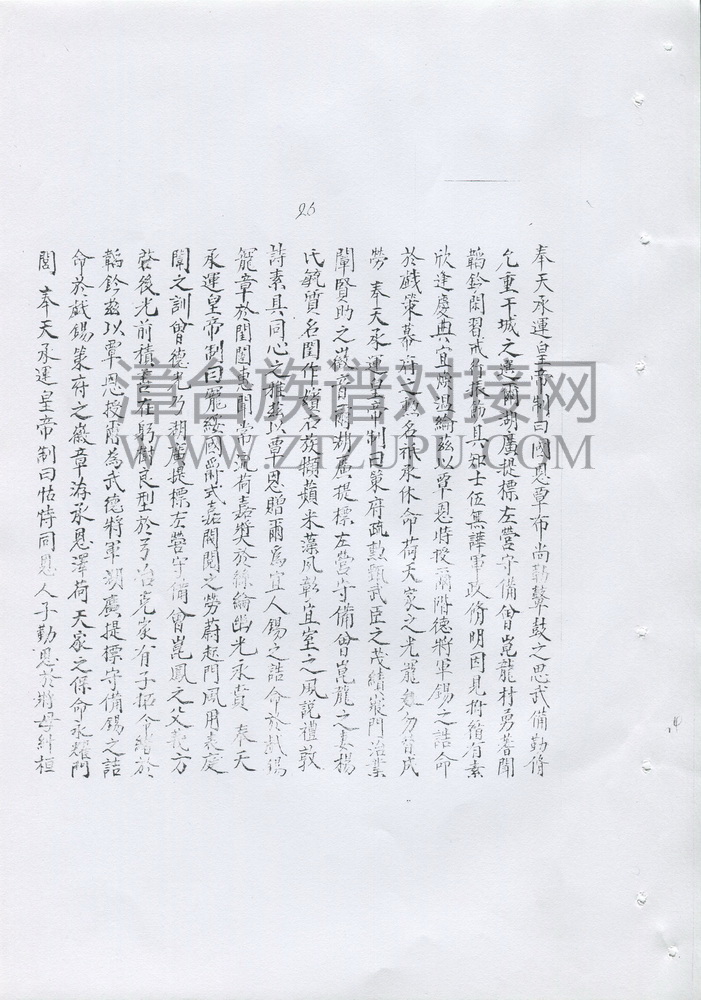 26
奉天承運皇帝制曰國恩覃布尚勤鼙鼓之思武備勤脩
允重干城之選爾胡廣提標左營守備曾崑龍材勇著聞
韜鈐閑習戒行振勵具知士伍無譁軍政脩明因見拊循有素
欣逢慶典宜煥溫綸茲以覃恩特授爾階德將軍錫之誥命
於戲榮幕府之勳名祇承休命荷天家之光寵無勿替成
勞 奉天承運皇帝制曰策府疏勳甄武臣之茂績寢門治業
闡賢助之徽音爾胡廣提標左營守備曾崑龍之妻楊
氏毓質名閨作嬪右族擷蘋采藻夙彰宜室之風說禮敦
詩素具同心之雅茲以覃恩贈爾為宜人錫之誥命於戲錫
寵章於閨閫惠問常流荷嘉奬於絲綸幽光永賁 奉天
承運皇帝制曰寵綏國爵式嘉閥閱之勞蔚起門風用表庭
闈之訓曾德光乃胡廣提標左營守備曾崑鳳之父義方
啟後光前積善在躬樹良型於弓冶克家有子拓令緒於
韜鈐茲以覃恩授爾為武德將軍湖廣提標守備錫之誥
命於戲錫策府之徽章洊承恩澤荷天家之保命永耀門
閭 奉天承運皇帝制曰怙恃同恩人子勤思於將母糾桓
漳台族谱对接网
WWW.ZTZUPU.COM